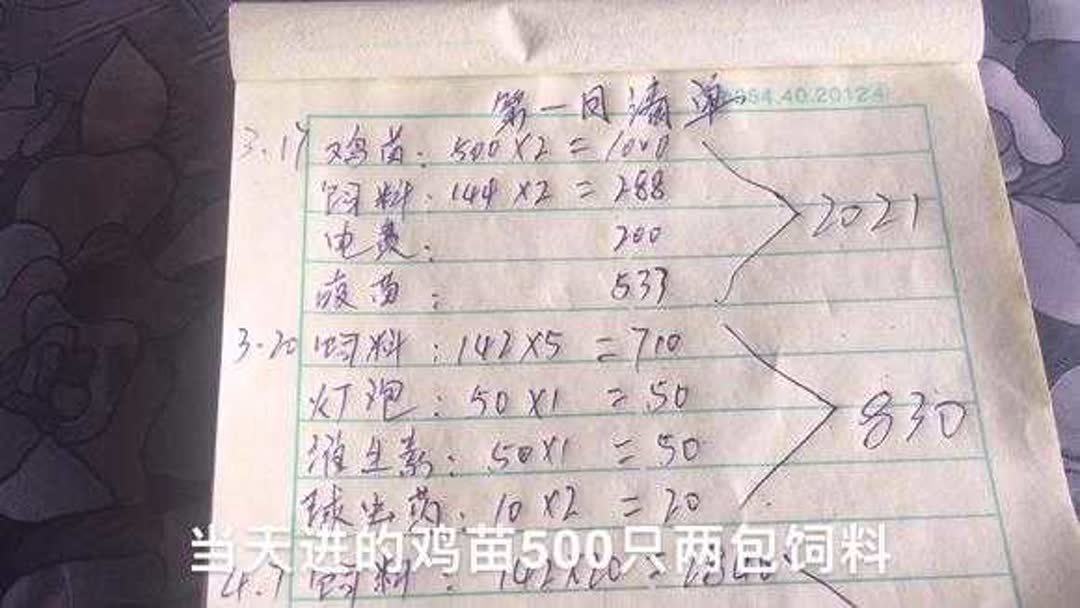 第一回清单
3.17 鸡苗: 500×2=1000
饲料: 144×2=288
电费: 200
疫苗: 533
2021
3.20 饲料: 142×5=710
灯泡: 50×1=50
维生素: 50×1=50
球虫药: 10×2=20
830
当天进的鸡苗500只两包饲料
4.7 饲料: 142×20=2840